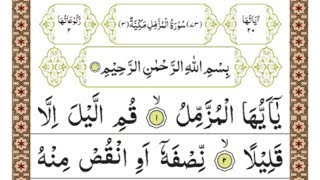 اٰيَاتُهَا ٢٠
(٧٣) سُوْرَةُ الْمُزَّمِّلِ مَكِّيَّةٌ (٣)
رُكُوْعَاتُهَا ٢
بِسْمِ اللّٰهِ الرَّحْمٰنِ الرَّحِيْمِ
يٰۤاَيُّهَا الْمُزَّمِّلُ ۙ ١ قُمِ الَّيْلَ اِلَّا
قَلِيْلًا ۙ ٢ نِّصْفَهٗۤ اَوِ انْقُصْ مِنْهُ